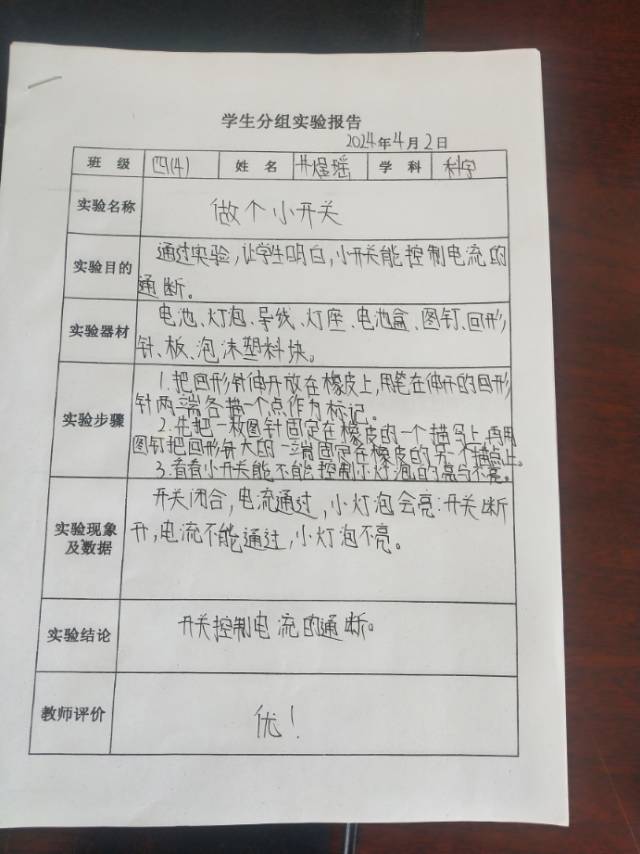 学生分组实验报告
2024年4月2日
班 级 四(4) 姓 名 井煜瑶 学 科 科学
实验名称 做个小开关
实验目的 通过实验,让学生明白,小开关能控制电流的
通断。
实验器材 电池、灯泡、导线、灯座、电池盒、图钉、回形
针、板、泡沫塑料块。
实验步骤 1.把回形针伸开放在橡皮上,用笔在伸开的回形
针两端各描一个点作为标记。
2.先把一枚图针固定在橡皮的一个描点上,再用
图钉把回形针大的一端固定在橡皮的另一个描点上。
3.看看小开关能不能控制小灯泡的亮与不亮。
实验现象
及数据
开关闭合,电流通过,小灯泡会亮:开关断
开,电流不能通过,小灯泡不亮。
实验结论 开关控制电流的通断。
教师评价 优!